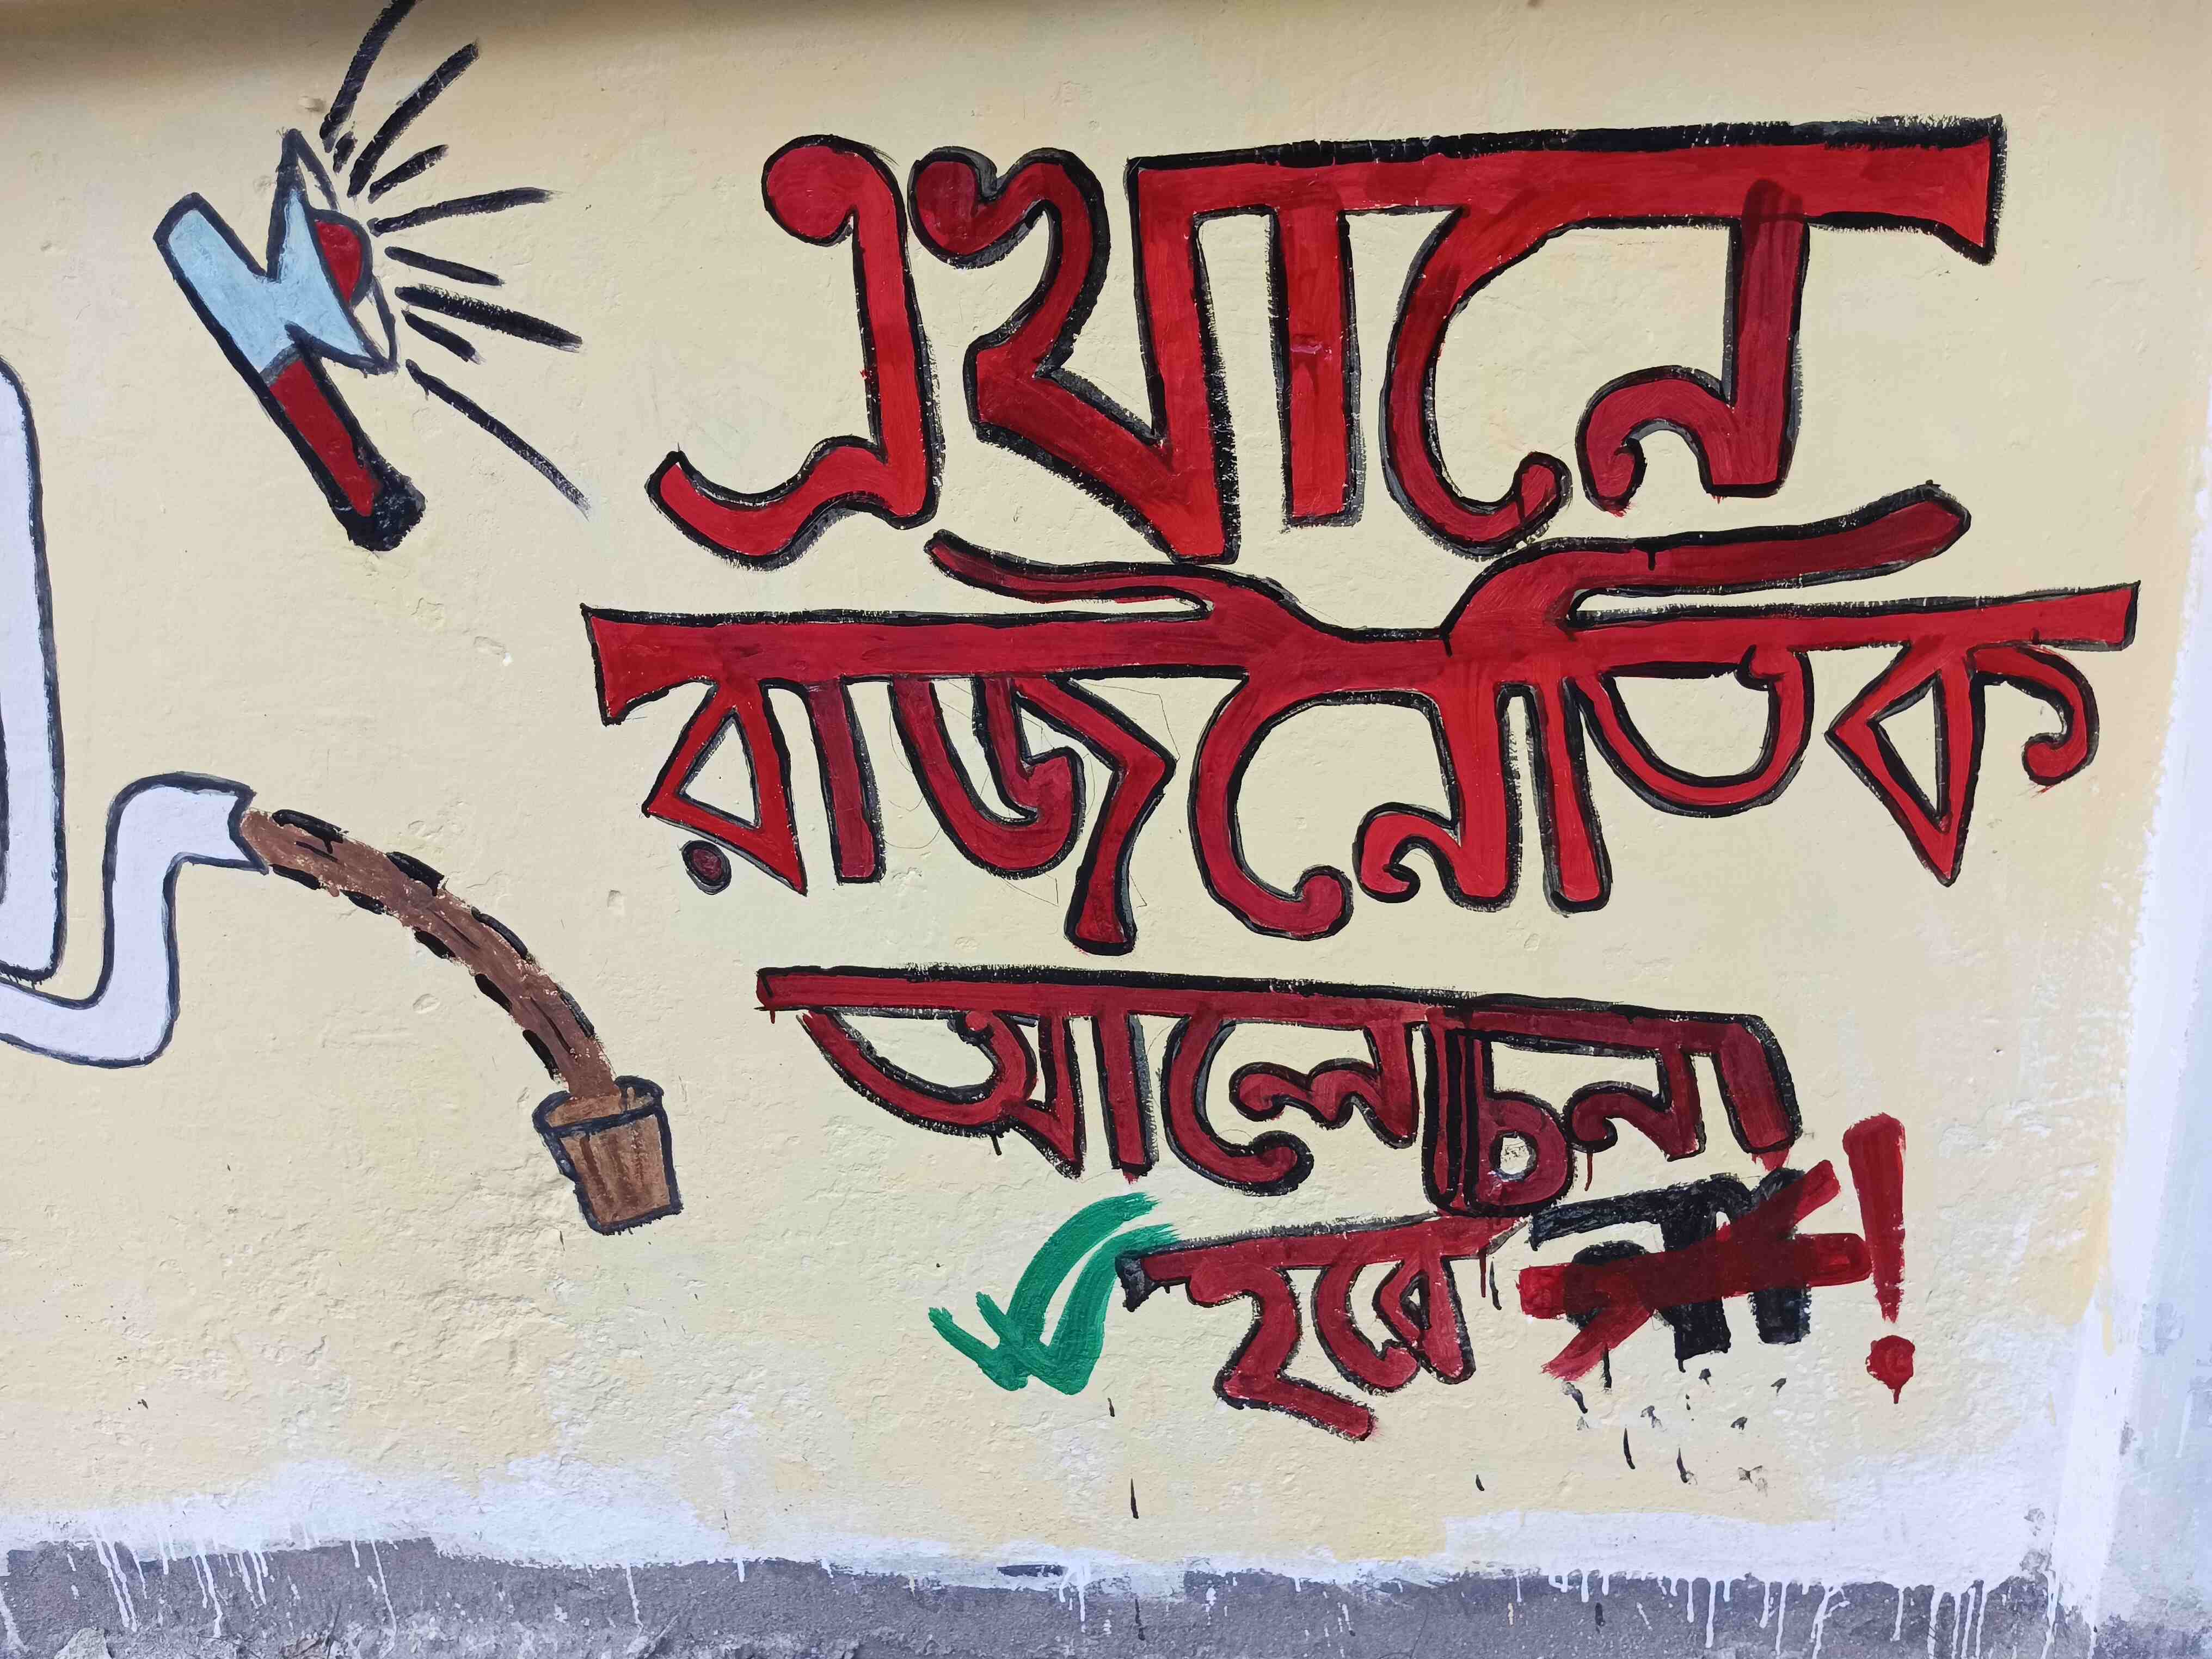 এখানে
রাজনৈতিক
আলোচনা
হবে না!